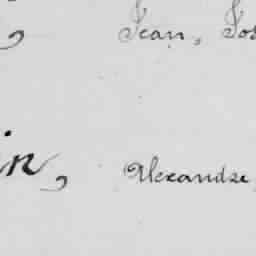 Jean, Jos
in, Alexandre